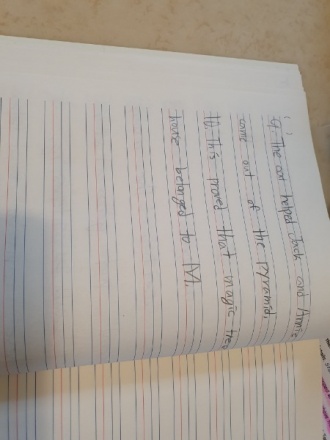 9. The cat helped Jack and Annie
come out of the pyramid.
10. This proved that magic tree
house belonged to M.